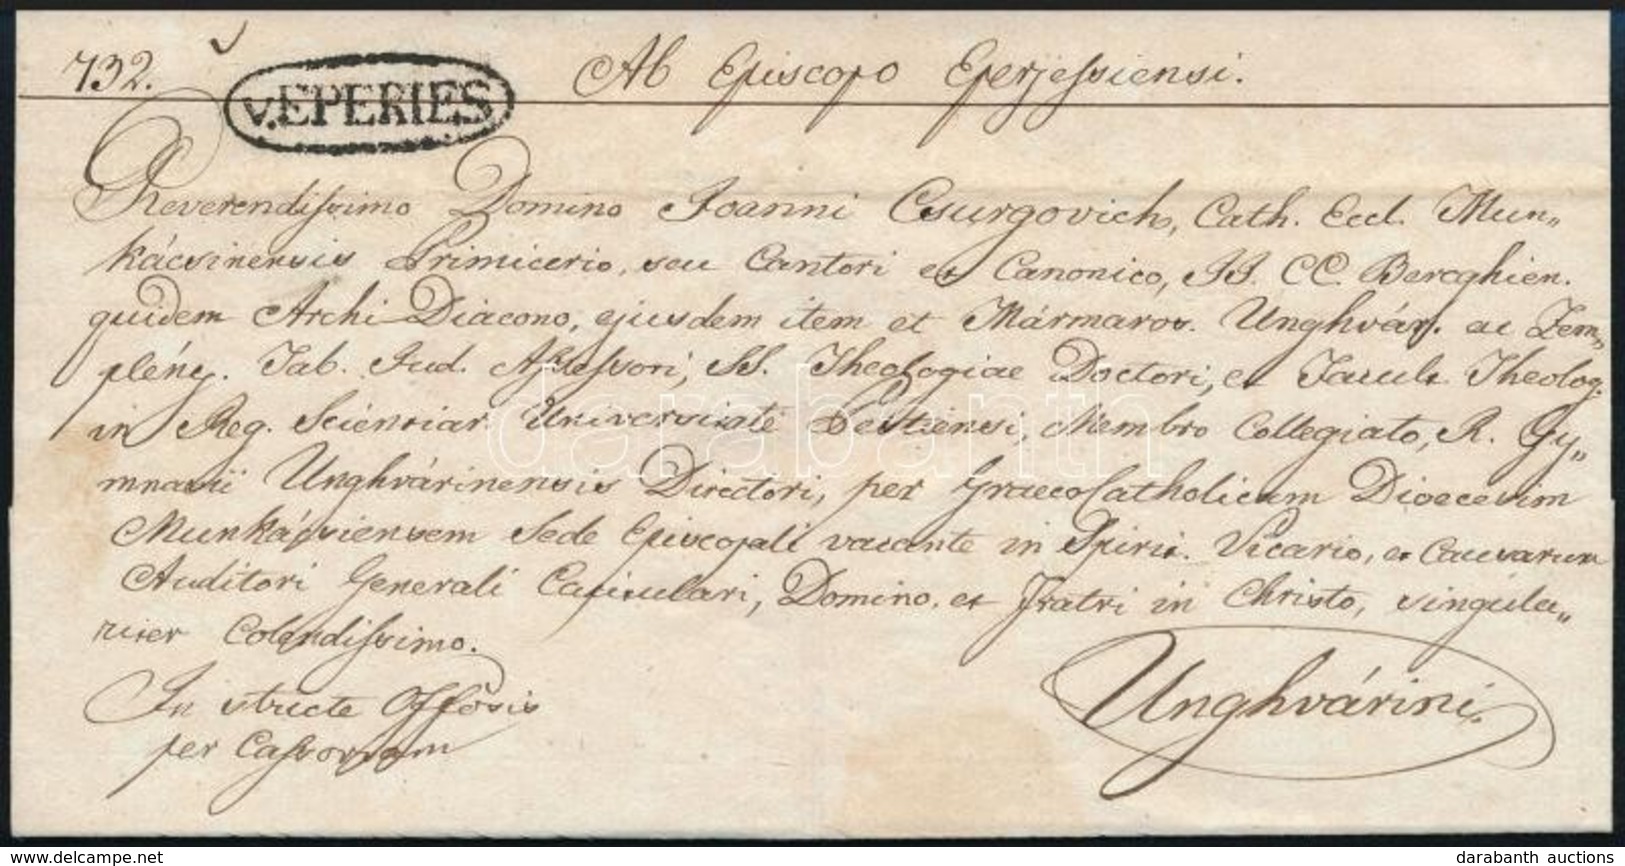 732. Ab Episcopo Eperjessiensi.
v. EPERIES
Reverendissimo Domino Joanni Csurgovich, Cath. Eccl. Mun„
kácsinensis Primicerio, seu Cantori et Canonico, II. CC. Bereghien.
quidem Archi Diacono, ejusdem item et Mármaros. Unghvár. ac Zem„
plény. Tab. Jud. Assessori, SS. Theologiae Doctori, et Facult. Theolog.
in Reg. Scientiar. Universitate Pestiensi, Membro Collegiato, R. Gy„
mnasii Unghvárinensis Directori, per GraecoCatholicam Dioecesim
Munkácsiensem Sede Episcopali vacante in Spirit. Vicario, et Causarum
Auditori Generali Capitulari, Domino, et Fratri in Christo, singula„
riter Colendissimo.
In stricte Offosis
per Cassoviam
Unghvárini.
darabanth
darabanth auctions
www.delcampe.net